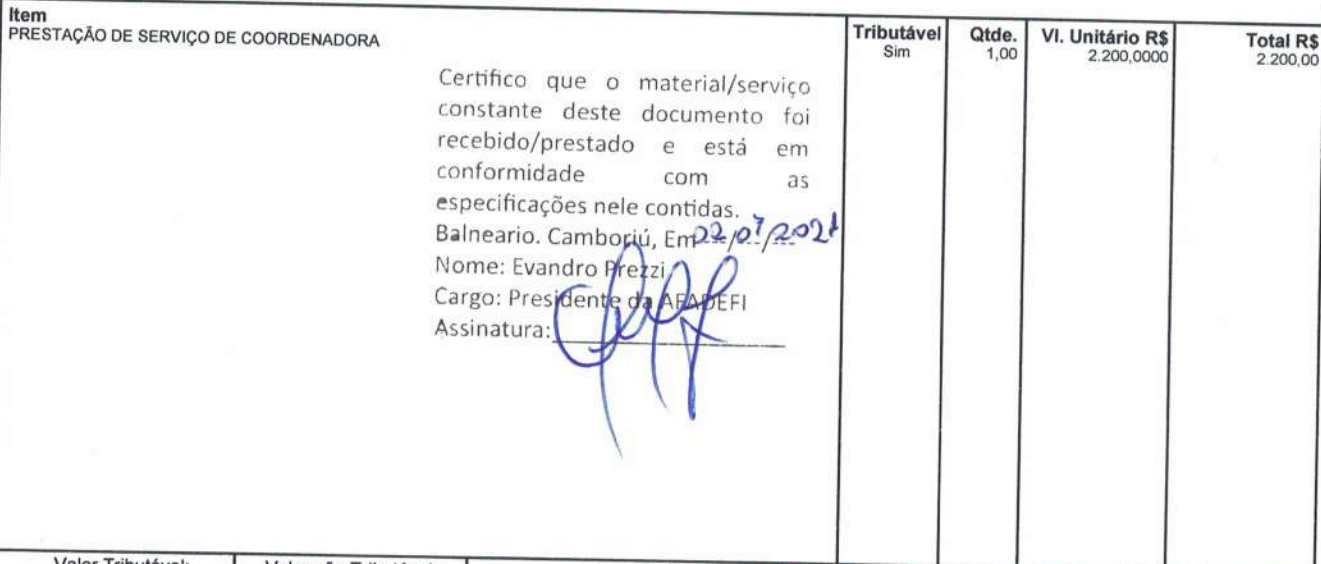 Item Tributável Qtde. Vl. Unitário R$ Total R$
PRESTAÇÃO DE SERVIÇO DE COORDENADORA Sim 1,00 2.200,0000 2.200,00
Certifico que o material/serviço
constante deste documento foi
recebido/prestado e está em
conformidade com as
especificações nele contidas.
Balneario. Camboriú, Em 22/07/2021
Nome: Evandro Prezzi
Cargo: Presidente da AFADEFI
Assinatura:
Valor Tributável: